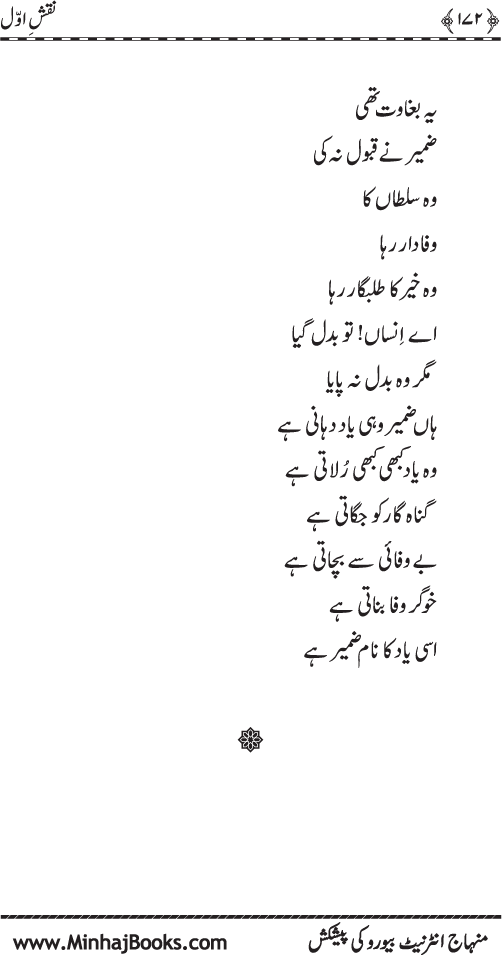 ﴿۱۷۲﴾ نقشِ اوّل
یہ بغاوت تھی
ضمیر نے قبول نہ کی
وہ سلطاں کا
وفادار رہا
وہ خیر کا طلبگار رہا
اے اِنساں! تو بدل گیا
مگر وہ بدل نہ پایا
ہاں ضمیر وہی یاد دہانی ہے
وہ یاد کبھی کبھی رُلاتی ہے
گناہ گار کو جگاتی ہے
بے وفائی سے بچاتی ہے
خوگر وفا بناتی ہے
اسی یاد کا نام ضمیر ہے
منہاج انٹرنیٹ بیورو کی پیشکش www.MinhajBooks.com